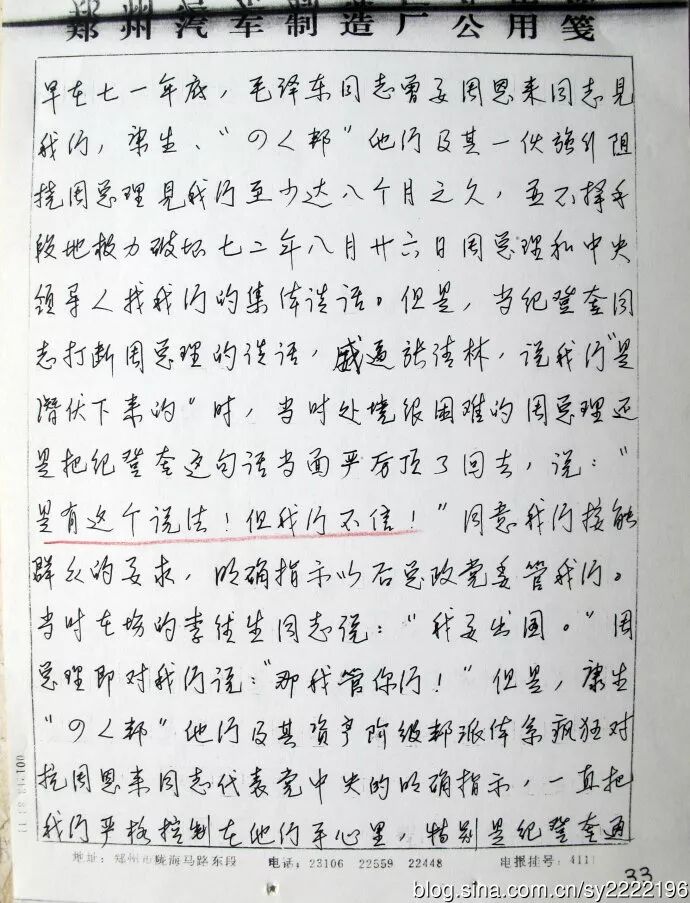 郑州汽车制造厂公用笺
早在七一年底，毛泽东同志曾要周恩来同志见
我们，康生、“四人邦”他们及其一伙强行阻
挠周总理见我们至少达八个月之久，并不择手
段地极力破坏七二年八月廿六日周总理和中央
领导人找我们的集体谈话。但是，当纪登奎同
志打断周总理的谈话，威逼张清林，说我们“是
潜伏下来的”时，当时处境很困难的周总理还
是把纪登奎这句话当面严厉顶了回去，说：“
是有这个说法！但我们不信！”同意我们接触
群众的要求，明确指示以后总政党委管我们。
当时在场的李德生同志说：“我要出国。”周
总理即对我们说：“那我管你们！”但是，康生
“四人邦”他们及其资产阶级邦派体系疯狂对
抗周恩来同志代表党中央的明确指示，一直把
我们严格控制在他们手心里，特别是纪登奎通
地址：郑州市陇海马路东段 电话：23106 22559 22448 电报挂号：4111
33
blog.sina.com.cn/sy2222196